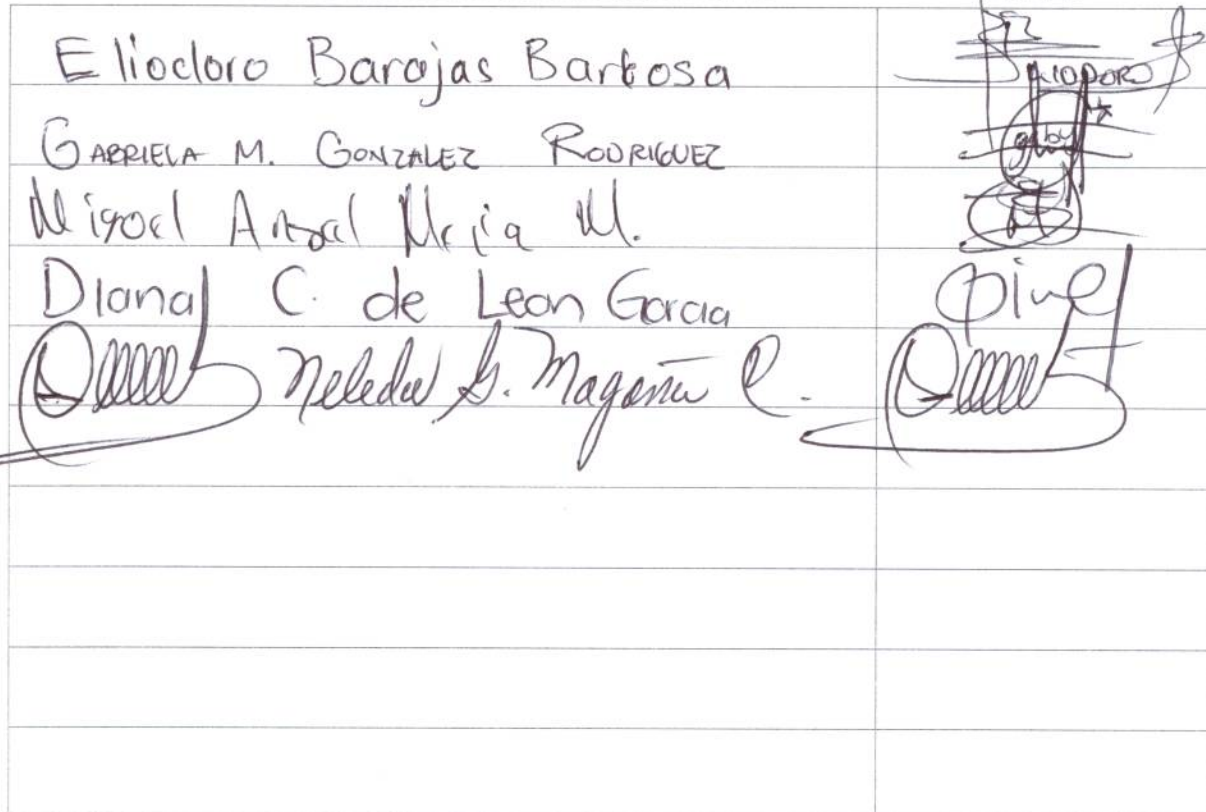 Eliodoro Barajas Barbosa
GABRIELA M. GONZALEZ RODRIGUEZ
Miguel Angel Mejia M.
Diana C. de Leon Garcia
G. Magaña C.